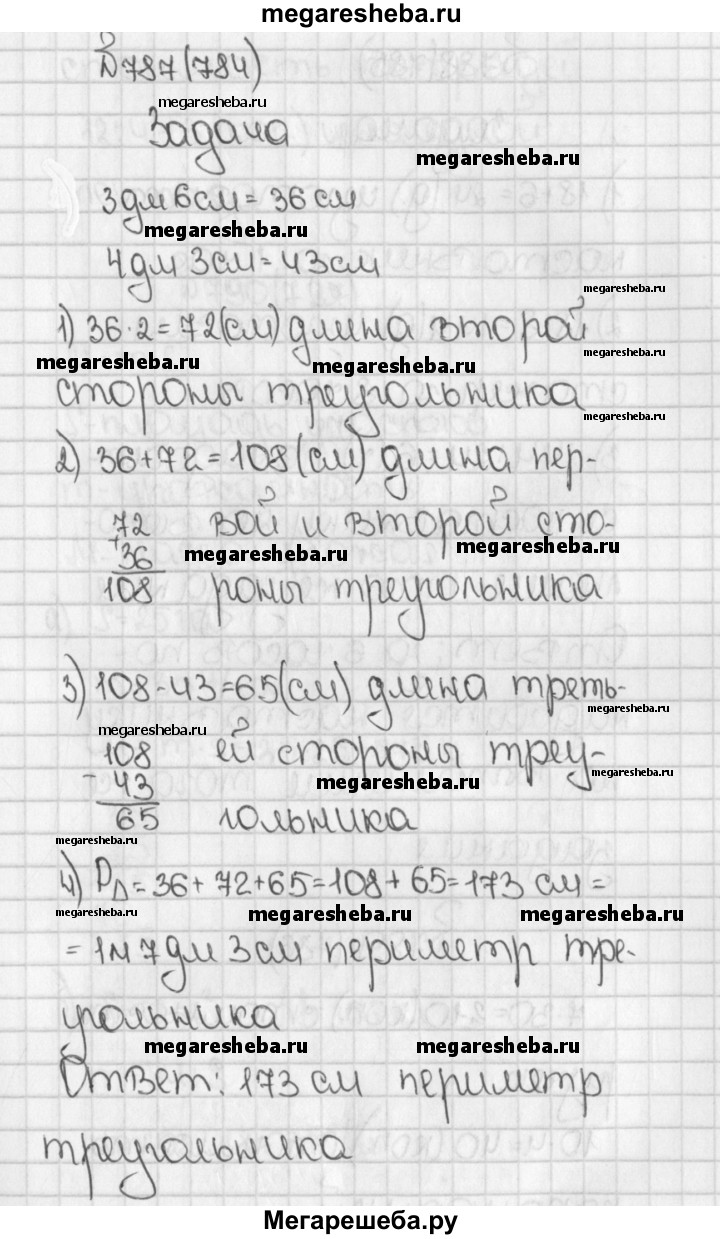 megaresheba.ru
№787(784)
megaresheba.ru
Задача
megaresheba.ru
3дм 6см = 36 см
megaresheba.ru
4дм 3см = 43см
megaresheba.ru
1) 36·2=72(см) длина второй
megaresheba.ru
megaresheba.ru
megaresheba.ru
стороны треугольника
megaresheba.ru
2) 36+72=108(см) длина пер-
72 вой и второй сто-
+36
megaresheba.ru
megaresheba.ru
108 роны треугольника
3) 108-43=65(см) длина треть-
megaresheba.ru
megaresheba.ru
108 ей стороны треу-
megaresheba.ru
megaresheba.ru
- 43
65 гольника
megaresheba.ru
4) PΔ=36+72+65=108+65=173 см =
megaresheba.ru
megaresheba.ru
megaresheba.ru
= 1м 7дм 3см периметр тре-
угольника
megaresheba.ru
megaresheba.ru
Ответ: 173 см периметр
треугольника
Мегарешеба.ру